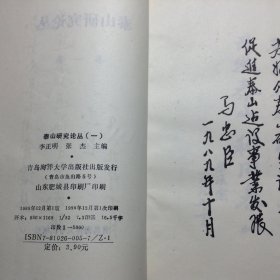 泰山研究论丛（一）
李正明 张杰 主编
青岛海洋大学出版社出版发行
（青岛市鱼山路5号）
山东肥城县印刷厂印刷
1989年12月第1版 1989年12月第1次印刷
开本：850×1168 1/32
印数：1—5000
ISBN7-81026-005-7/Z·1
定价：3.90元
促进泰山建设事业发展
马忠臣
一九八九年十月